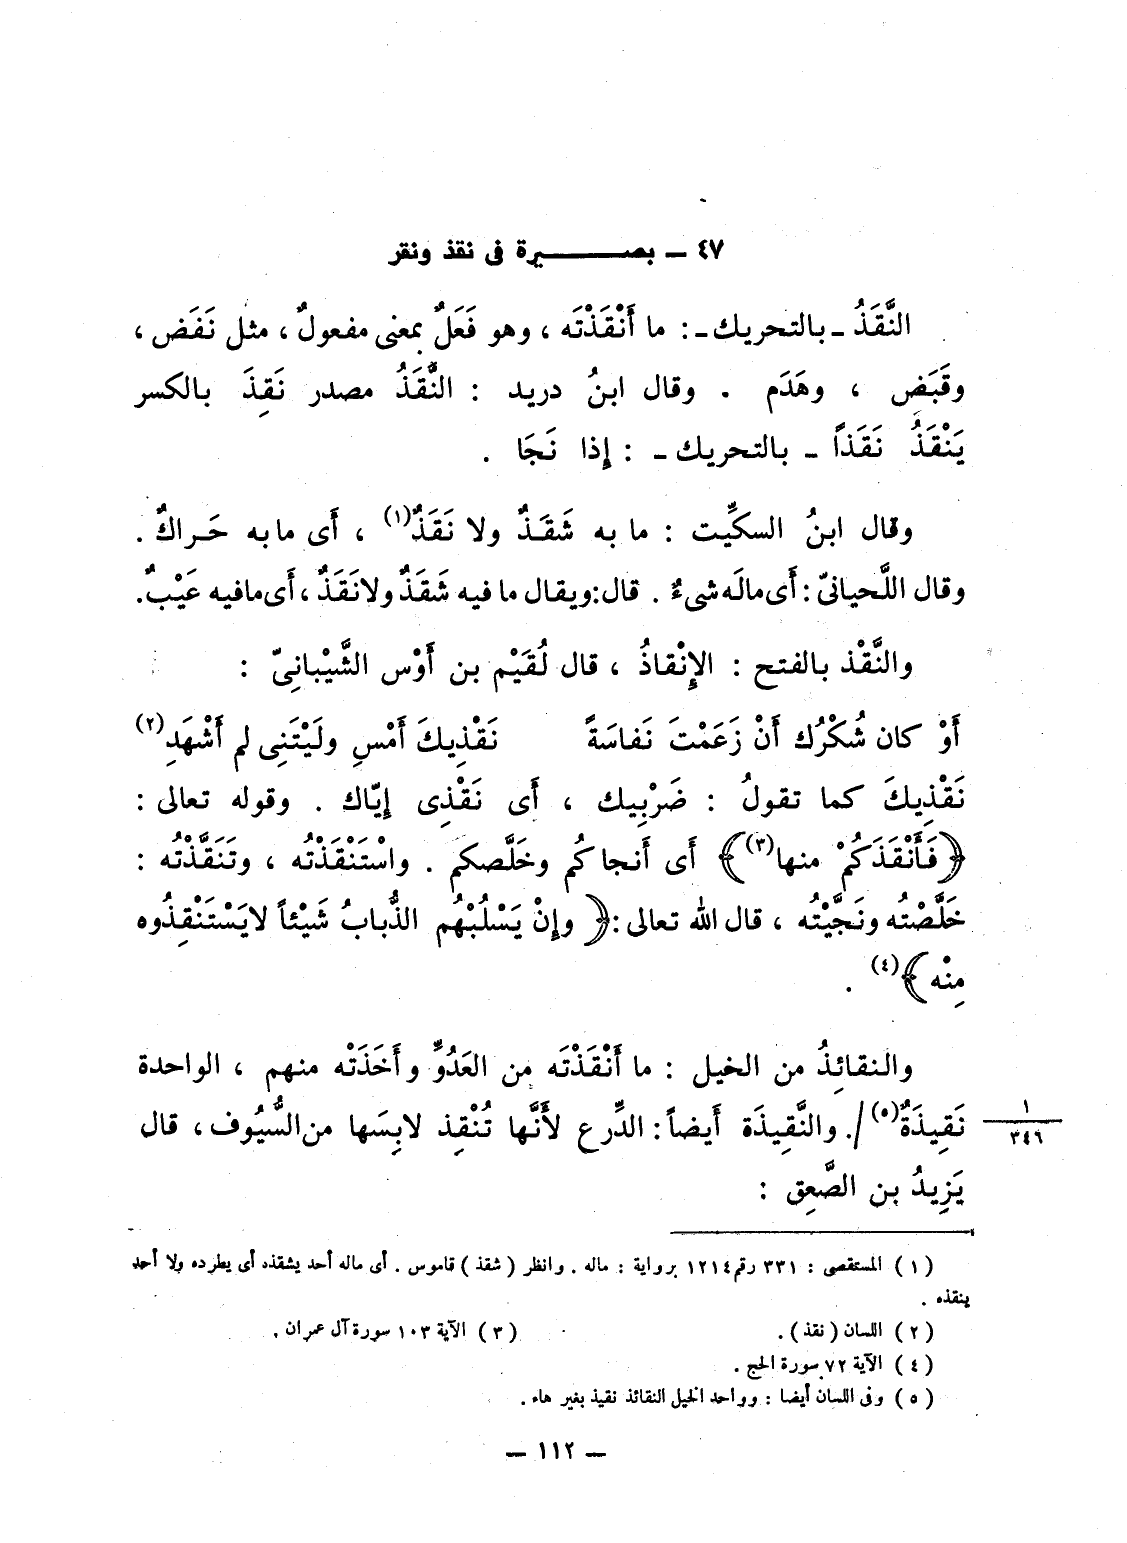 ٤٧ ـ بصــــــيرة فى نقذ ونقر
النَّقَذُ ـ بالتحريك ـ : ما أَنْقَذْتَه ، وهو فَعَلٌ بمعنى مفعولٌ ، مثل نَفَض ،
وقَبَض ، وهَدَم . وقال ابنُ دريد : النَّقَذُ مصدر نَقِذَ بالكسر
يَنْقَذُ نَقَذاً ـ بالتحريك ـ : إذا نَجَا .
وقال ابنُ السكِّيت : ما به شَقَذٌ ولا نَقَذٌ(١) ، أَى ما به حَراكٌ .
وقال اللَّحيانىّ : أَى مالَه شىءٌ . قال : ويقال ما فيه شَقَذٌ ولا نَقَذٌ ، أَى ما فيه عَيْبٌ .
والنَّقْذ بالفتح : الإِنْقاذُ ، قال لُقَيْم بن أَوْس الشَّيْبانىّ :
أَوْ كان شُكْرُك أَنْ زَعَمْتَ نَفاسَةً نَقْذِيكَ أَمْسِ ولَيْتَنِى لم أَشْهَدِ(٢)
نَقْذِيكَ كما تقولُ : ضَرْبِيك ، أَى نَقْذِى إِيّاك . وقوله تعالى :
﴿فَأَنْقَذَكُمْ منها(٣)﴾ أَى أَنجاكُم وخَلَّصكم . واسْتَنْقَذْتُه ، وتَنَقَّذْتُه :
خَلَّصْتُه ونَجَّيْتُه ، قال الله تعالى : ﴿ وإِنْ يَسْلُبْهُم الذُّبابُ شَيْئاً لا يَسْتَنْقِذُوه
مِنْه ﴾(٤) .
والنقائِذُ من الخيل : ما أَنْقَذْتَه مِن العَدُوِّ وأَخَذَتْه منهم ، الواحدة
نَقِيذَةٌ(٥)/ . والنَّقِيذَة أَيضاً : الدِّرع لأَنَّها تُنْقِذ لابِسَها من السُّيُوف ، قال
١
٣٤٦
يَزِيدُ بن الصَّعِق :
( ١ ) المستقصى : ٣٣١ رقم ١٢١٤ برواية : ماله . وانظر ( شقذ ) قاموس . أى ماله أحد يشقذه أى يطرده ولا أحد
ينقذه .
( ٢ ) اللسان ( نقذ ) . ( ٣ ) الآية ١٠٣ سورة آل عمران .
( ٤ ) الآية ٧٢ سورة الحج .
( ٥ ) وفى اللسان أيضا : وواحد الخيل النقائذ نقيذ بغير هاء .
ـ ١١٢ ـ